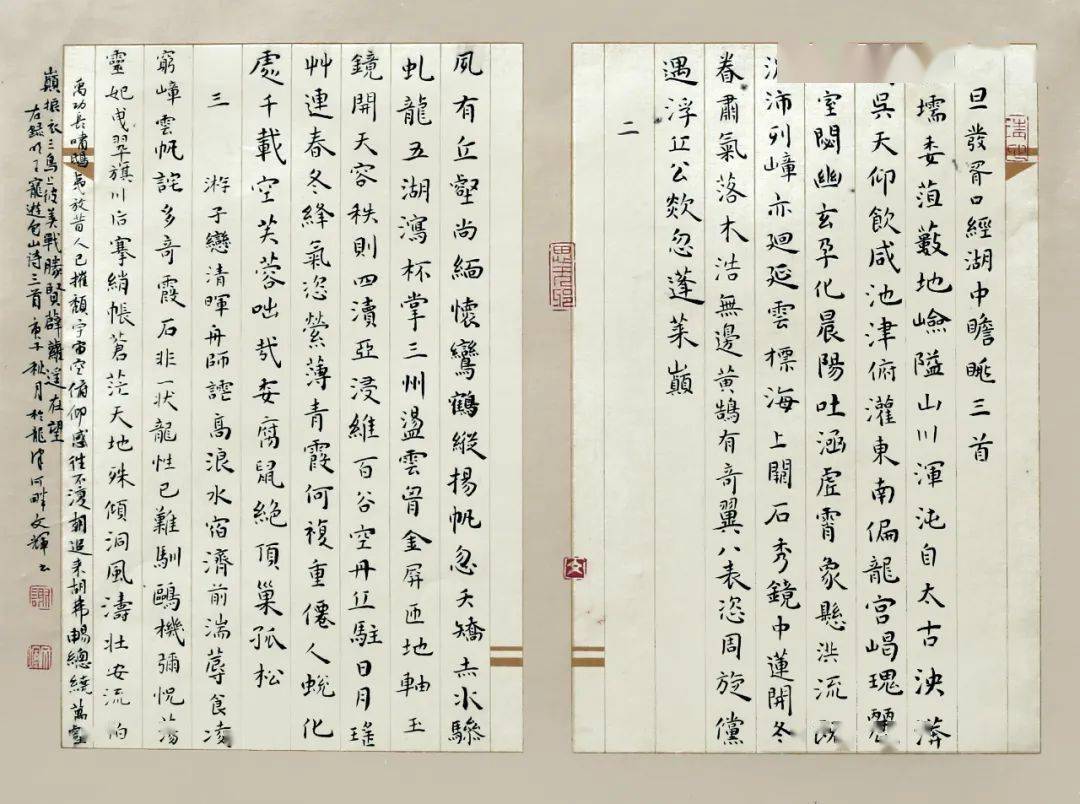 旦發胥口經湖中瞻眺三首
壖委菹藪地嶮隘山川渾沌自太古泱漭
吳天仰飲咸池津俯灌東南偏龍宮嵑瑰麗
室閟幽玄孕化晨陽吐涵虛霄象懸洪流既
沛列嶂亦廻延雲標海上闢石秀鏡中蓮開冬
眷肅氣落木浩無邊黄鵠有奇翼八表恣周旋儻
遇浮丘公欻忽蓬萊巔
二
夙有丘壑尚緬懷鸞鶴縱揚帆忽夭矯赤水驂
虬龍五湖瀉杯掌三州盪雲胷金屏匝地軸玉
鏡開天容秩則四瀆亞浸維百谷空丹丘駐日月瑤
艸連春冬絳氣恣縈薄青霞何複重僊人蛻化
處千載空芙蓉咄哉委腐鼠絶頂巢孤松
三
游子戀清暉舟師諕高浪水宿濟前湍蓐食凌
窮嶂雲帆詫多奇霞石非一状龍性已難馴鷗機彌怳蕩
靈妃曳翠旗川后搴綃帳蒼茫天地殊傾洞風濤壯安流伯
禹功長嘯鴟夷放昔人已摧頽宇宙空俯仰感徃不渡朝追来胡弗暢總繞萬壑
巔振衣三鳥上彼美戰勝賢薜蘿逕在望
右録明丁寵遊包山詩三首 庚子秋月於龍津河畔文輝書